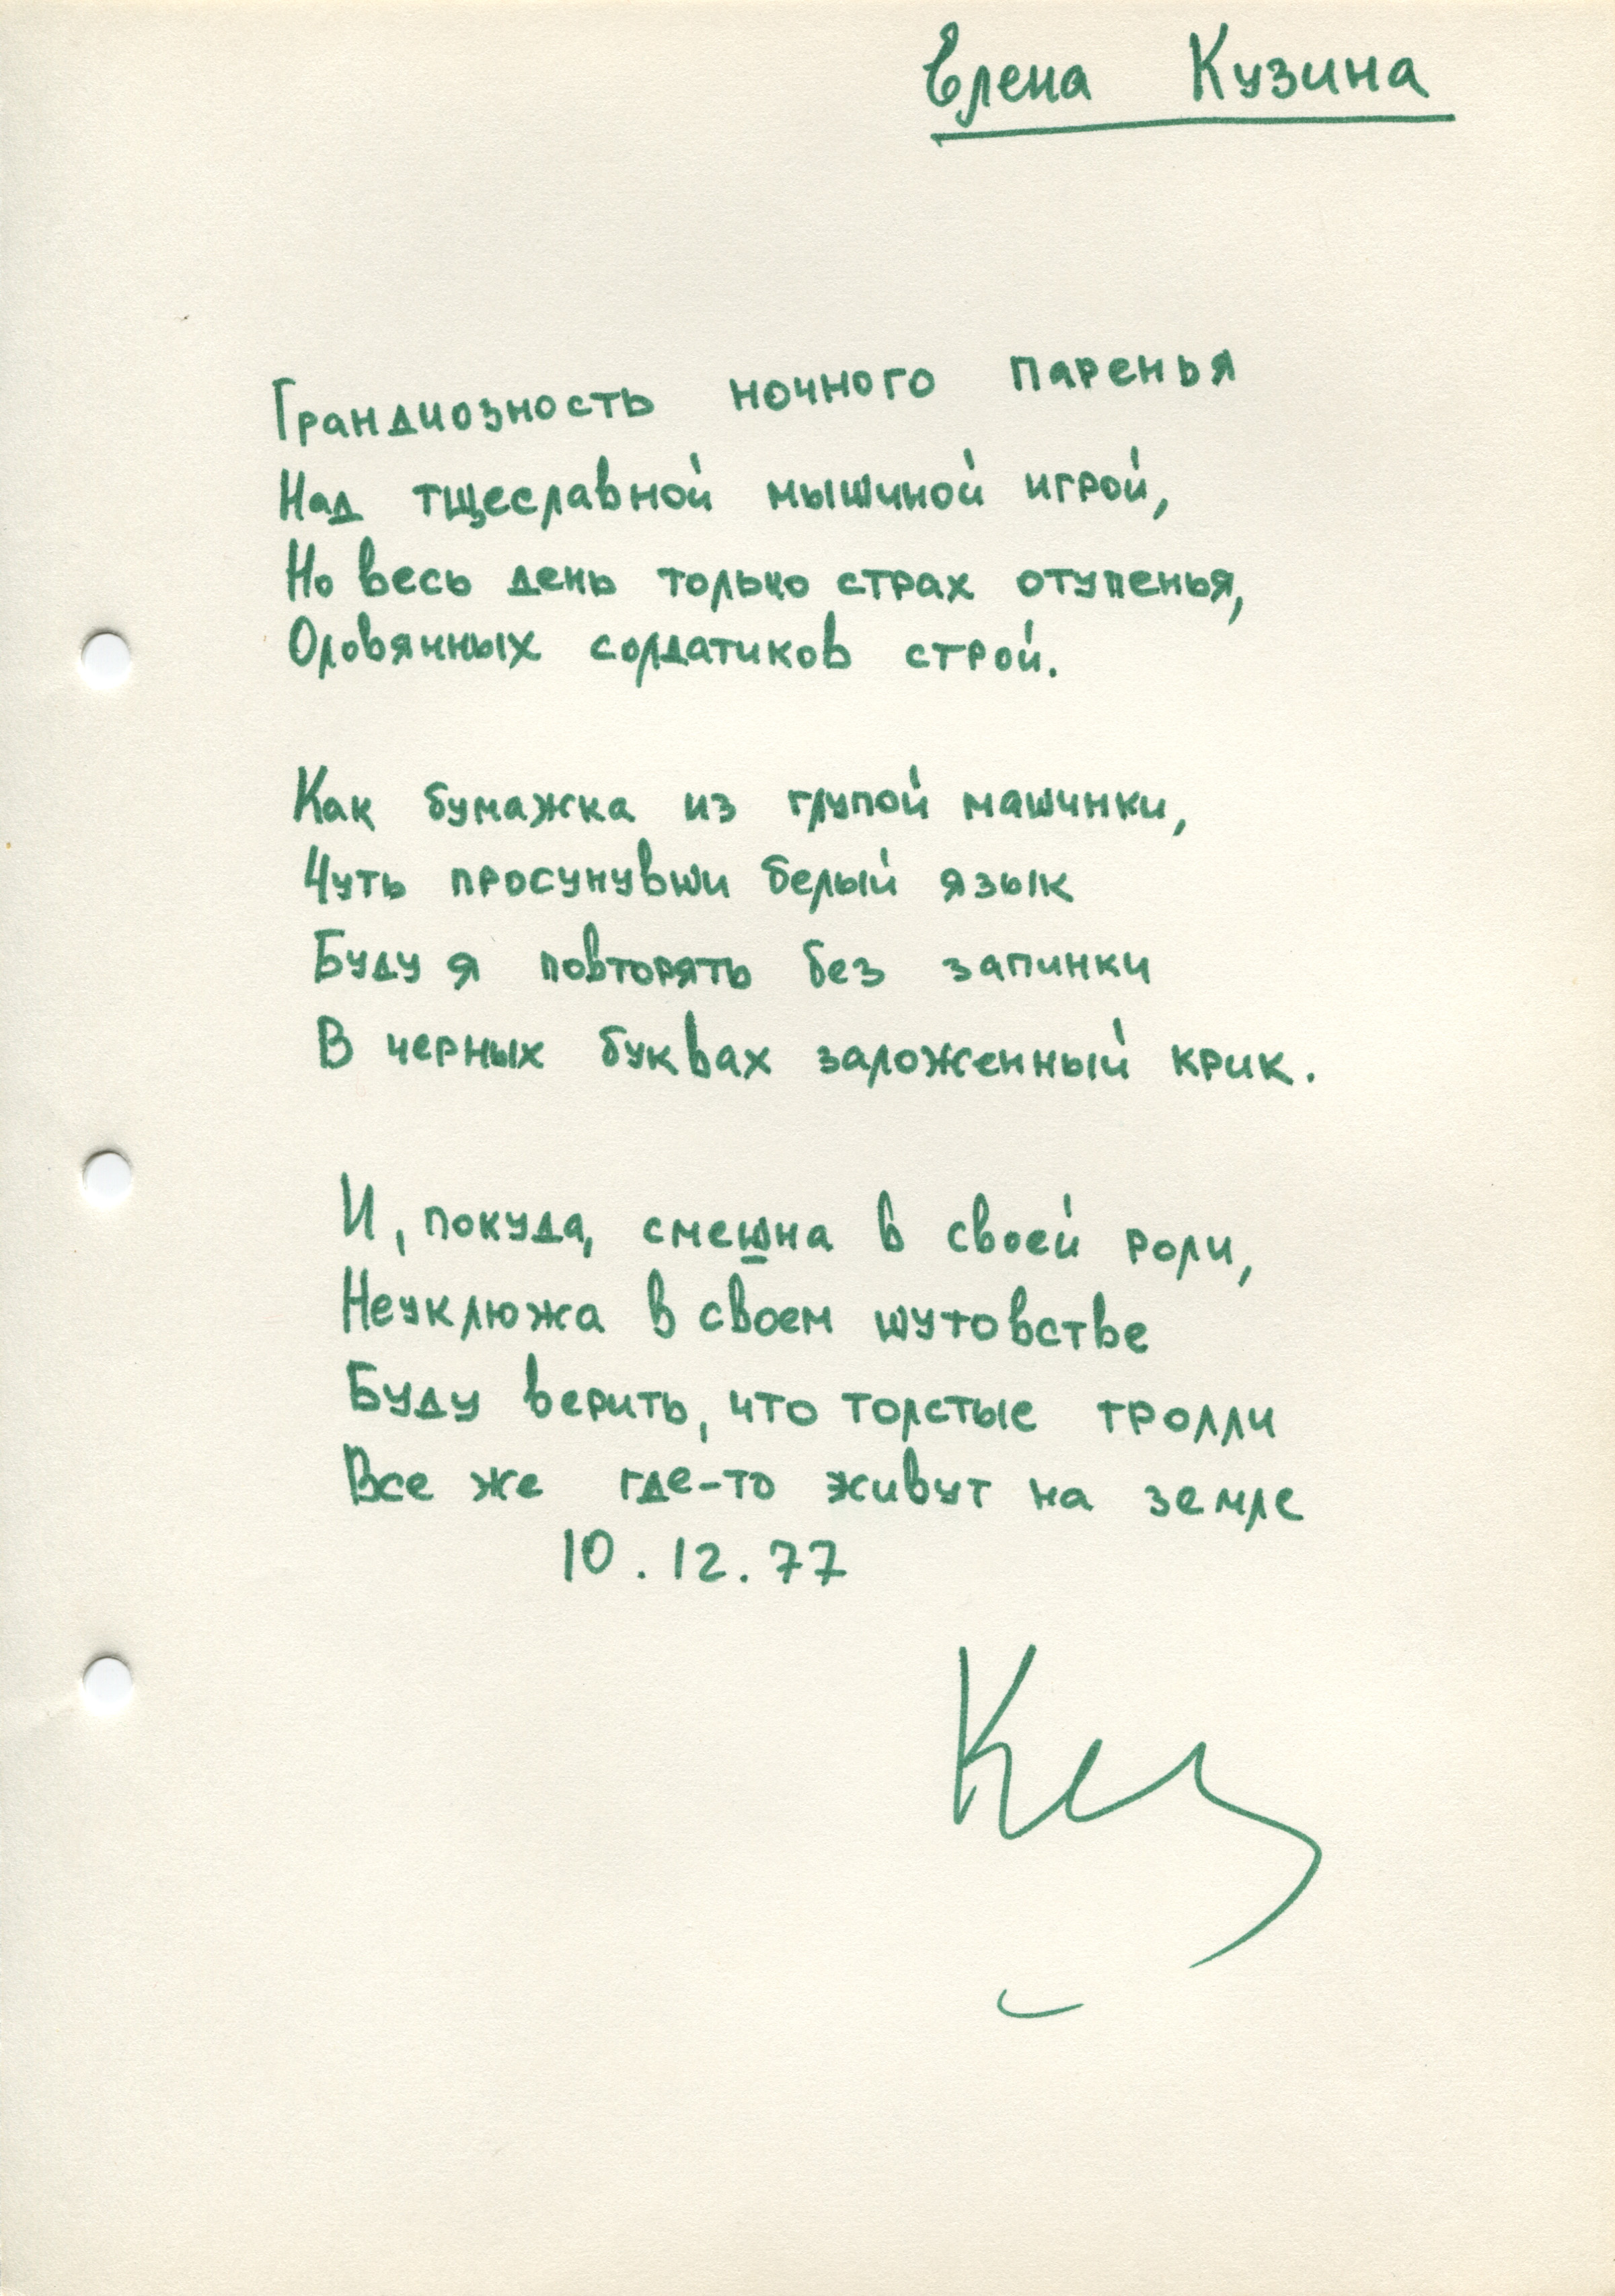 Елена Кузина
Грандиозность ночного паренья
Над тщеславной мышиной игрой,
Но весь день только страх отупенья,
Оловянных солдатиков строй.
Как бумажка из глупой машинки,
Чуть просунувши белый язык
Буду я повторять без запинки
В черных буквах заложенный крик.
И, покуда, смешна в своей роли,
Неуклюжа в своем шутовстве
Буду верить, что толстые тролли
Все же где-то живут на земле
10.12.77